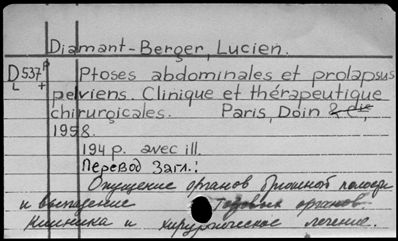 Diamant-Berger, Lucien.
D 537 p Ptoses abdominales et prolapsus
L + pelviens. Clinique et thérapeutique
chirurgicales. Paris, Doin & Cie,
1958.
194 p. avec ill.
Перевод загл.:
Опущение органов брюшной полости
и выпадение тазовых органов.
Клиника и хирургическое лечение.